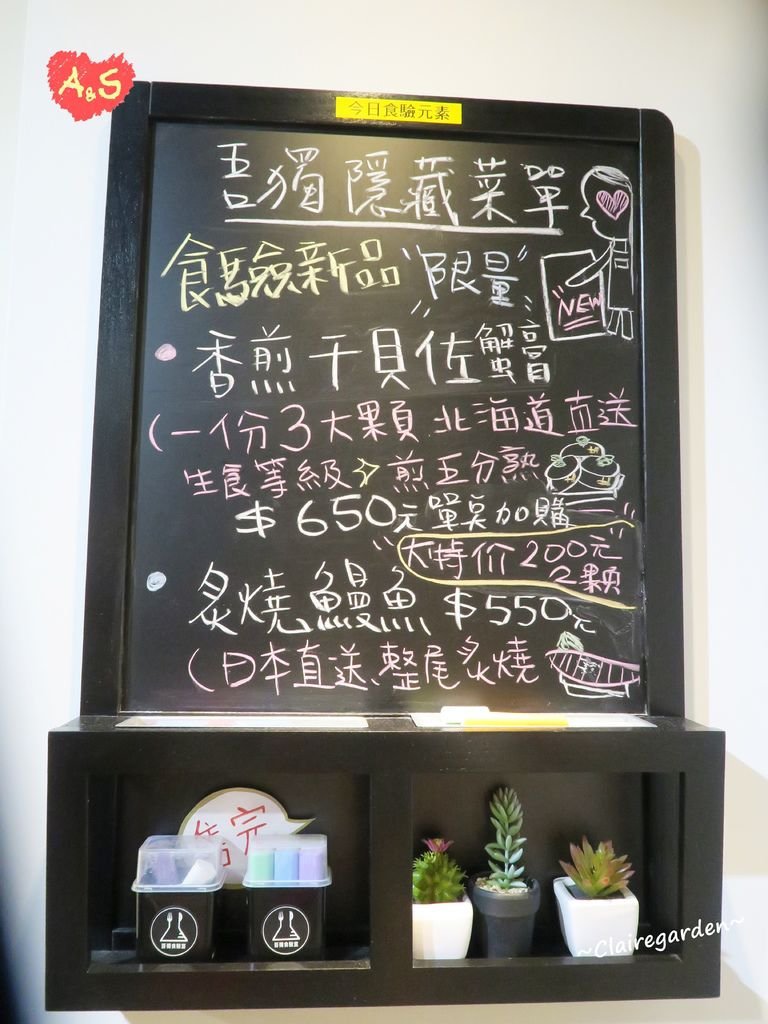 A&S
今日食驗元素
吾獨隱藏菜單
食驗新品 "限量"
NEW
香煎干貝佐蟹膏
(一份3大顆 北海道直送
生食等級→煎五分熟
$650元 單點加購
大特价200元
2顆
炙燒鰻魚 $550元
(日本直送、整尾炙燒
售完
~Clairegarden~